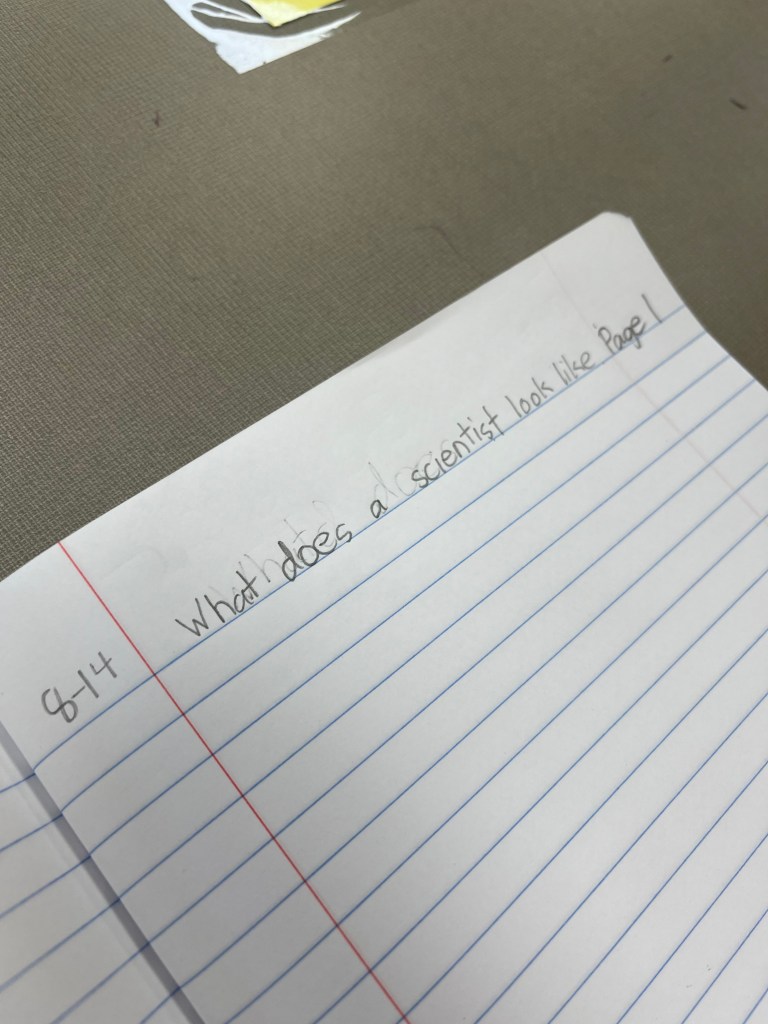 What does a scientist look like Page 1
8-14